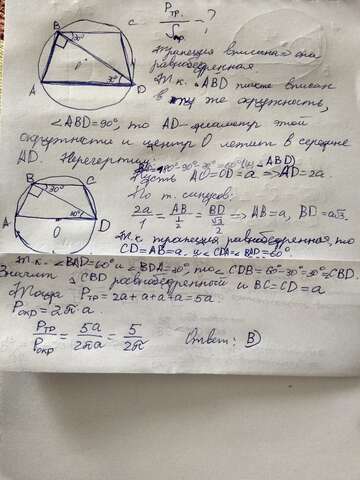 B
C
A
D
O
30°
C Pтр. / Sокр. - ?
Трапеция вписанная она
равнобедренная
Т.к. △ABD также вписан
в эту же окружность,
∠ABD=90°, то AD-диаметр этой
окружности и центр O лежит в середине
AD. Перечертим:
Пусть AO=OD=a ⇒ AD=2a.
По т. синусов:
2a/1 = AB/(1/2) = BD/(√3/2) ⇒ AB=a, BD=a√3.
B
C
A
D
O
30°
Т.к. трапеция равнобедренная, то
CD=AB=a, и ∠CDA=∠BAD=60°.
Т.к. ∠BAD=60° и ∠BDA=30°, то ∠CDB=60°-30°=30°=∠CBD.
Значит △CBD равнобедренный и BC=CD=a
Тогда Pтр=2a+a+a+a=5a.
Pокр=2πa.
Pтр/Pокр = 5a/2πa = 5/2π Ответ: B)